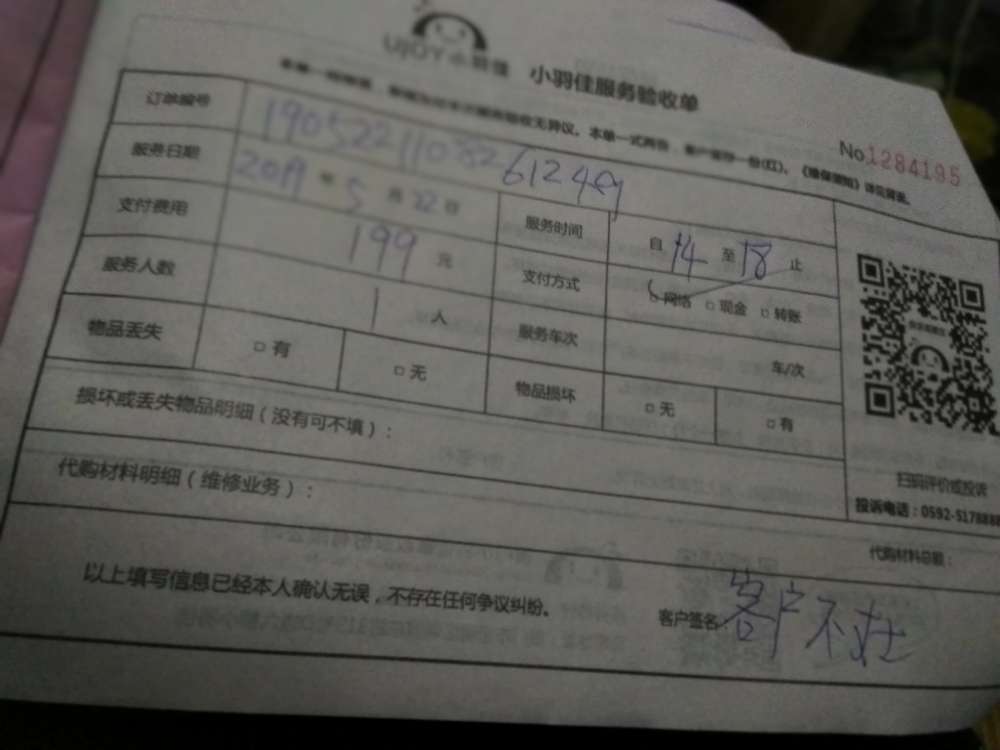 UJOY小羽佳
小羽佳服务验收单
No1284195
订单编号 190522110826124
服务日期 2019年5月22日 服务时间 自14至18止
支付费用 199元 支付方式 □网络 □现金 □转账
服务人数 1人 服务车次 车/次
物品丢失 □有 □无 物品损坏 □无 □有
损坏或丢失物品明细(没有可不填):
扫码评价或投诉
代购材料明细(维修业务):
投诉电话:0592-517888
代购材料总额:
以上填写信息已经本人确认无误,不存在任何争议纠纷。
客户签名 客户不在